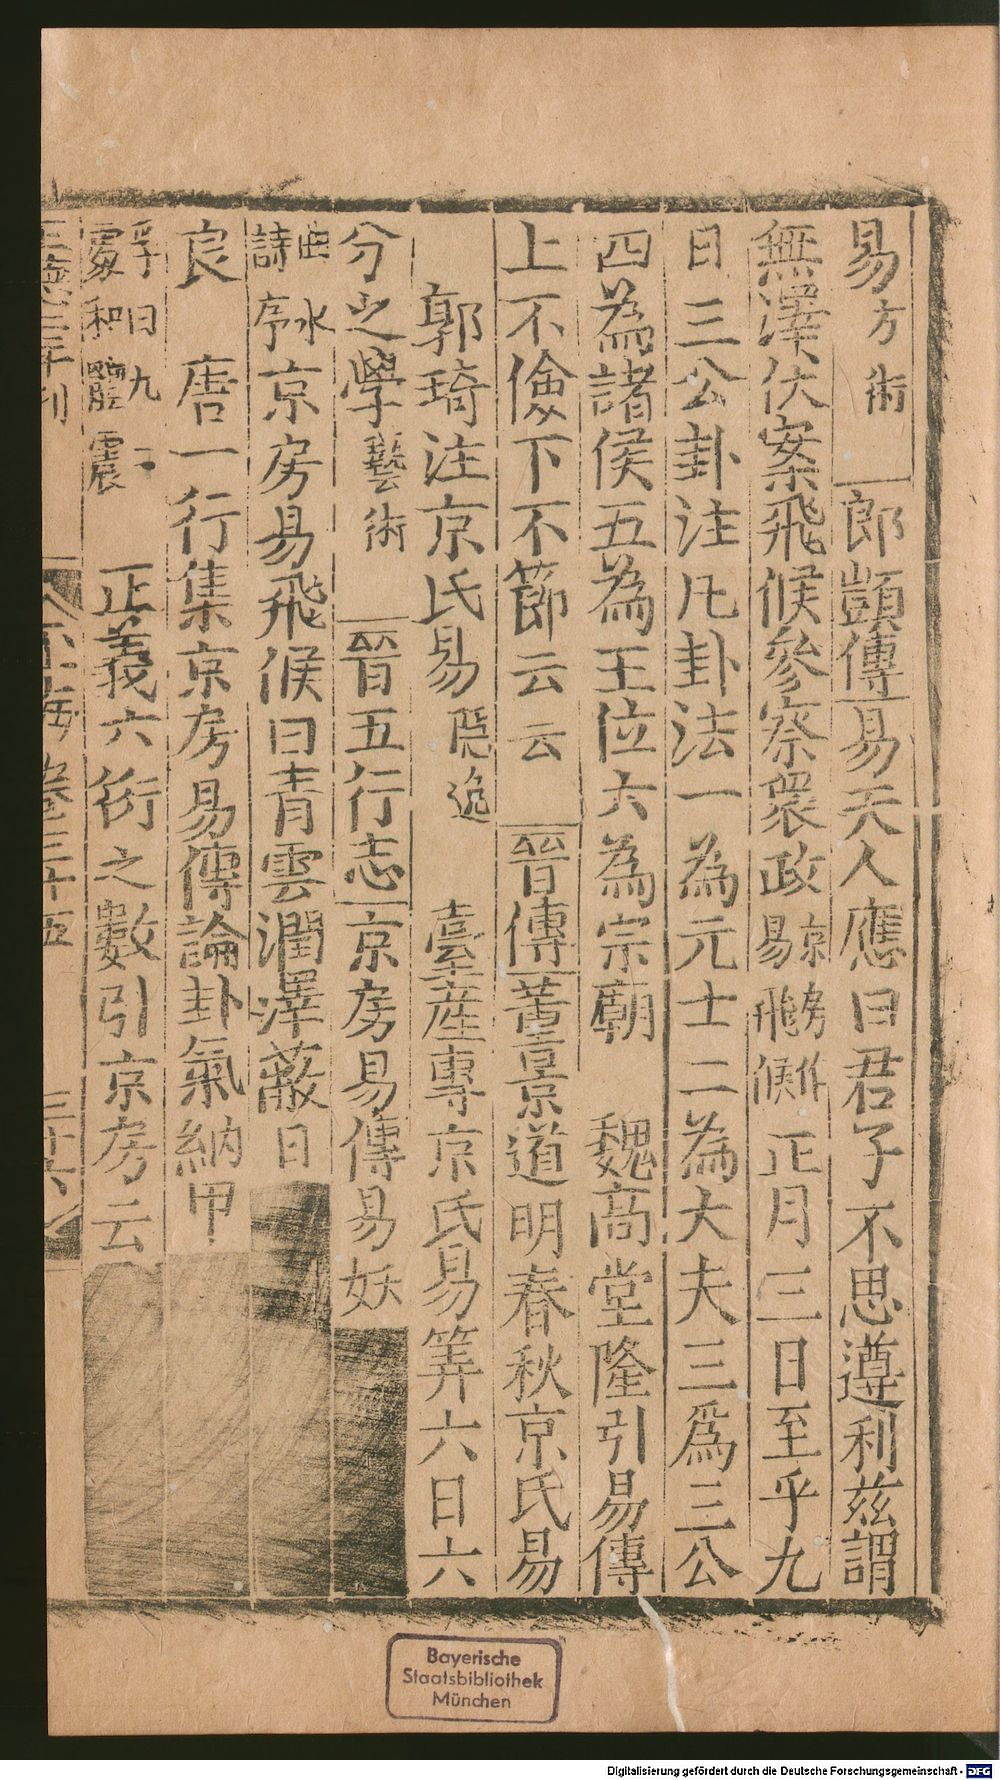 易方術 郎顗傳易天人應曰君子不思遵利茲謂
無澤伏案飛候參察衆政京房作易飛候正月三日至乎九
日三公卦注凡卦法一為元士二為大夫三爲三公
四為諸侯五為王位六為宗廟 魏高堂隆引易傳
上不儉下不節云云 晉傳董景道明春秋京氏易
郭琦注京氏易隱逸 臺產專京氏易筭六日六
分之學藝術 晉五行志京房易傳易妖
曲水詩序京房易飛候曰青雲潤澤蔽日
良 唐一行集京房易傳論卦氣納甲
正義六術之數引京房云
卷三十五 三十六
Bayerische
Staatsbibliothek
München
Digitalisierung gefördert durch die Deutsche Forschungsgemeinschaft - DFG